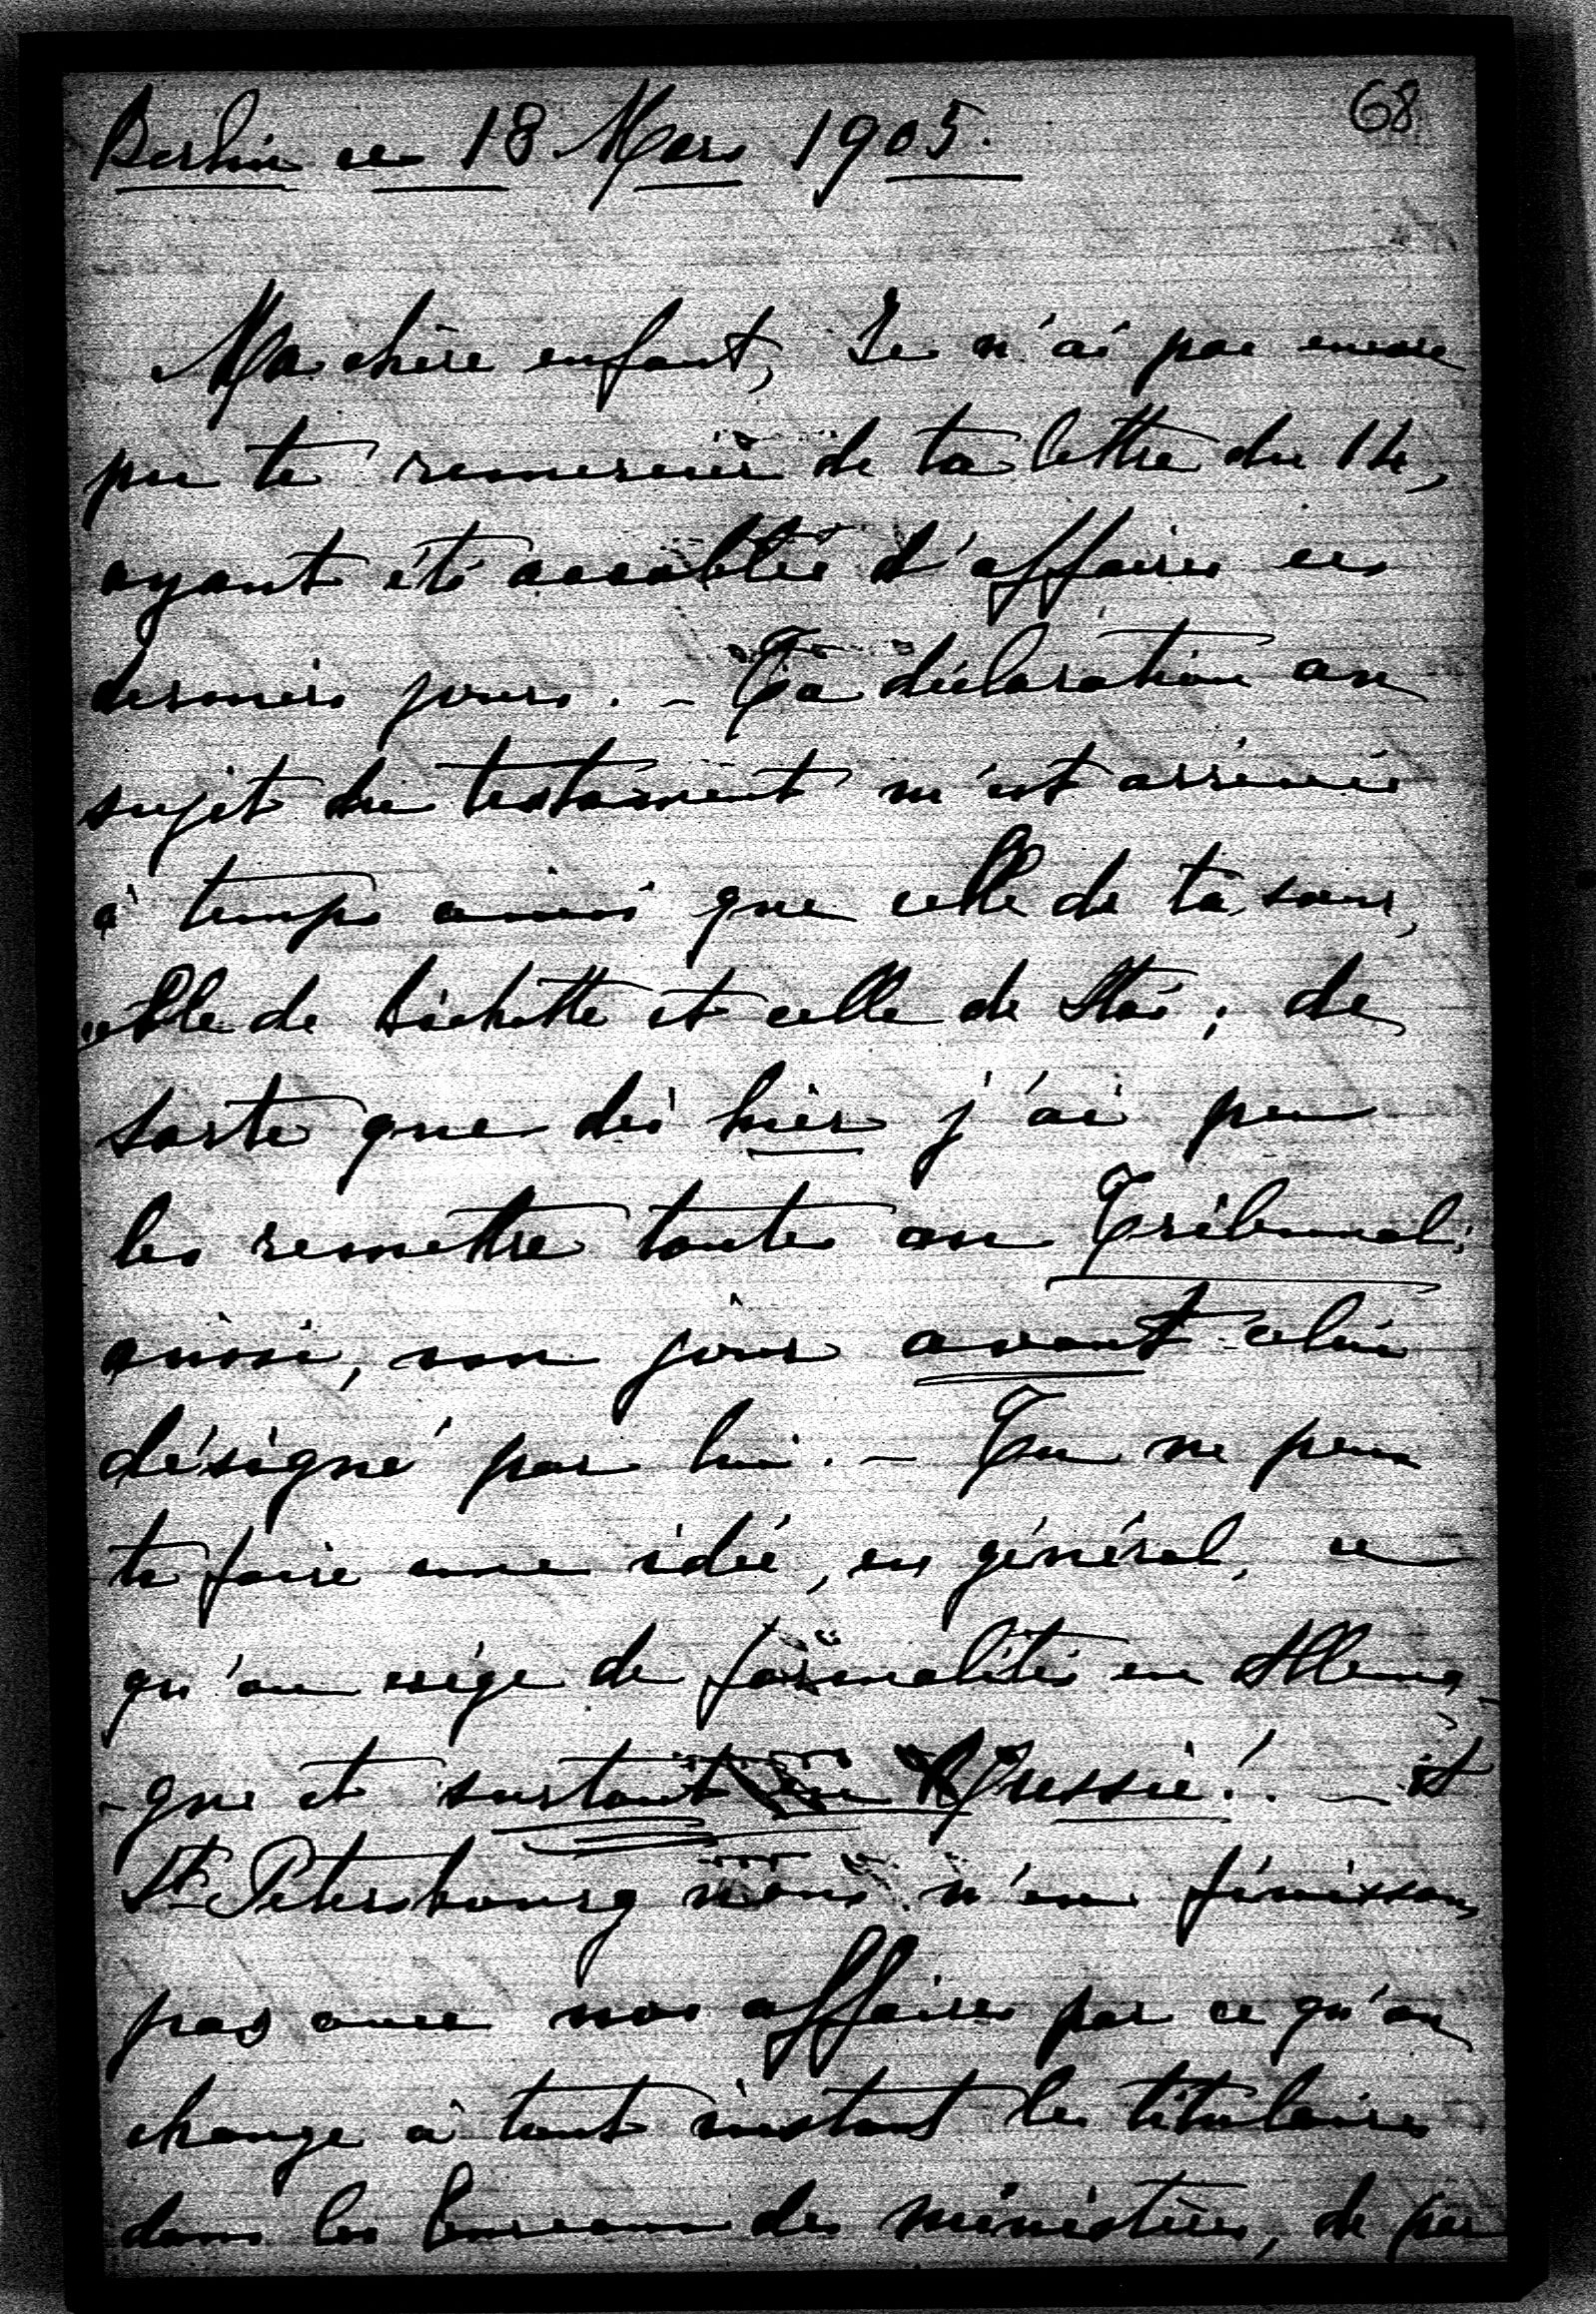 68
Berlin ce 18 Mars 1905.
Ma chère enfant, Je n'ai pas encore
pu te remercier de ta lettre du 14,
ayant été accablée d'affaires ces
derniers jours. – Ta déclaration au
sujet du testament m'est arrivée
à temps ainsi que celle de ta sœur,
celle de Bichette et celle de Staś ; de
sorte que dès hier j'ai pu
les remettre toutes au Tribunal ;
ainsi, un jour avant celui
désigné par lui. – Tu ne peux
te faire une idée, en général, ce
qu'on exige de formalités en Allema-
-gne et surtout en Prusse !. – Et
St Petersbourg nous n'en finissons
pas avec nos affaires par ce qu'on
change à tout instant les titulaires
dans les bureaux des ministères, de par